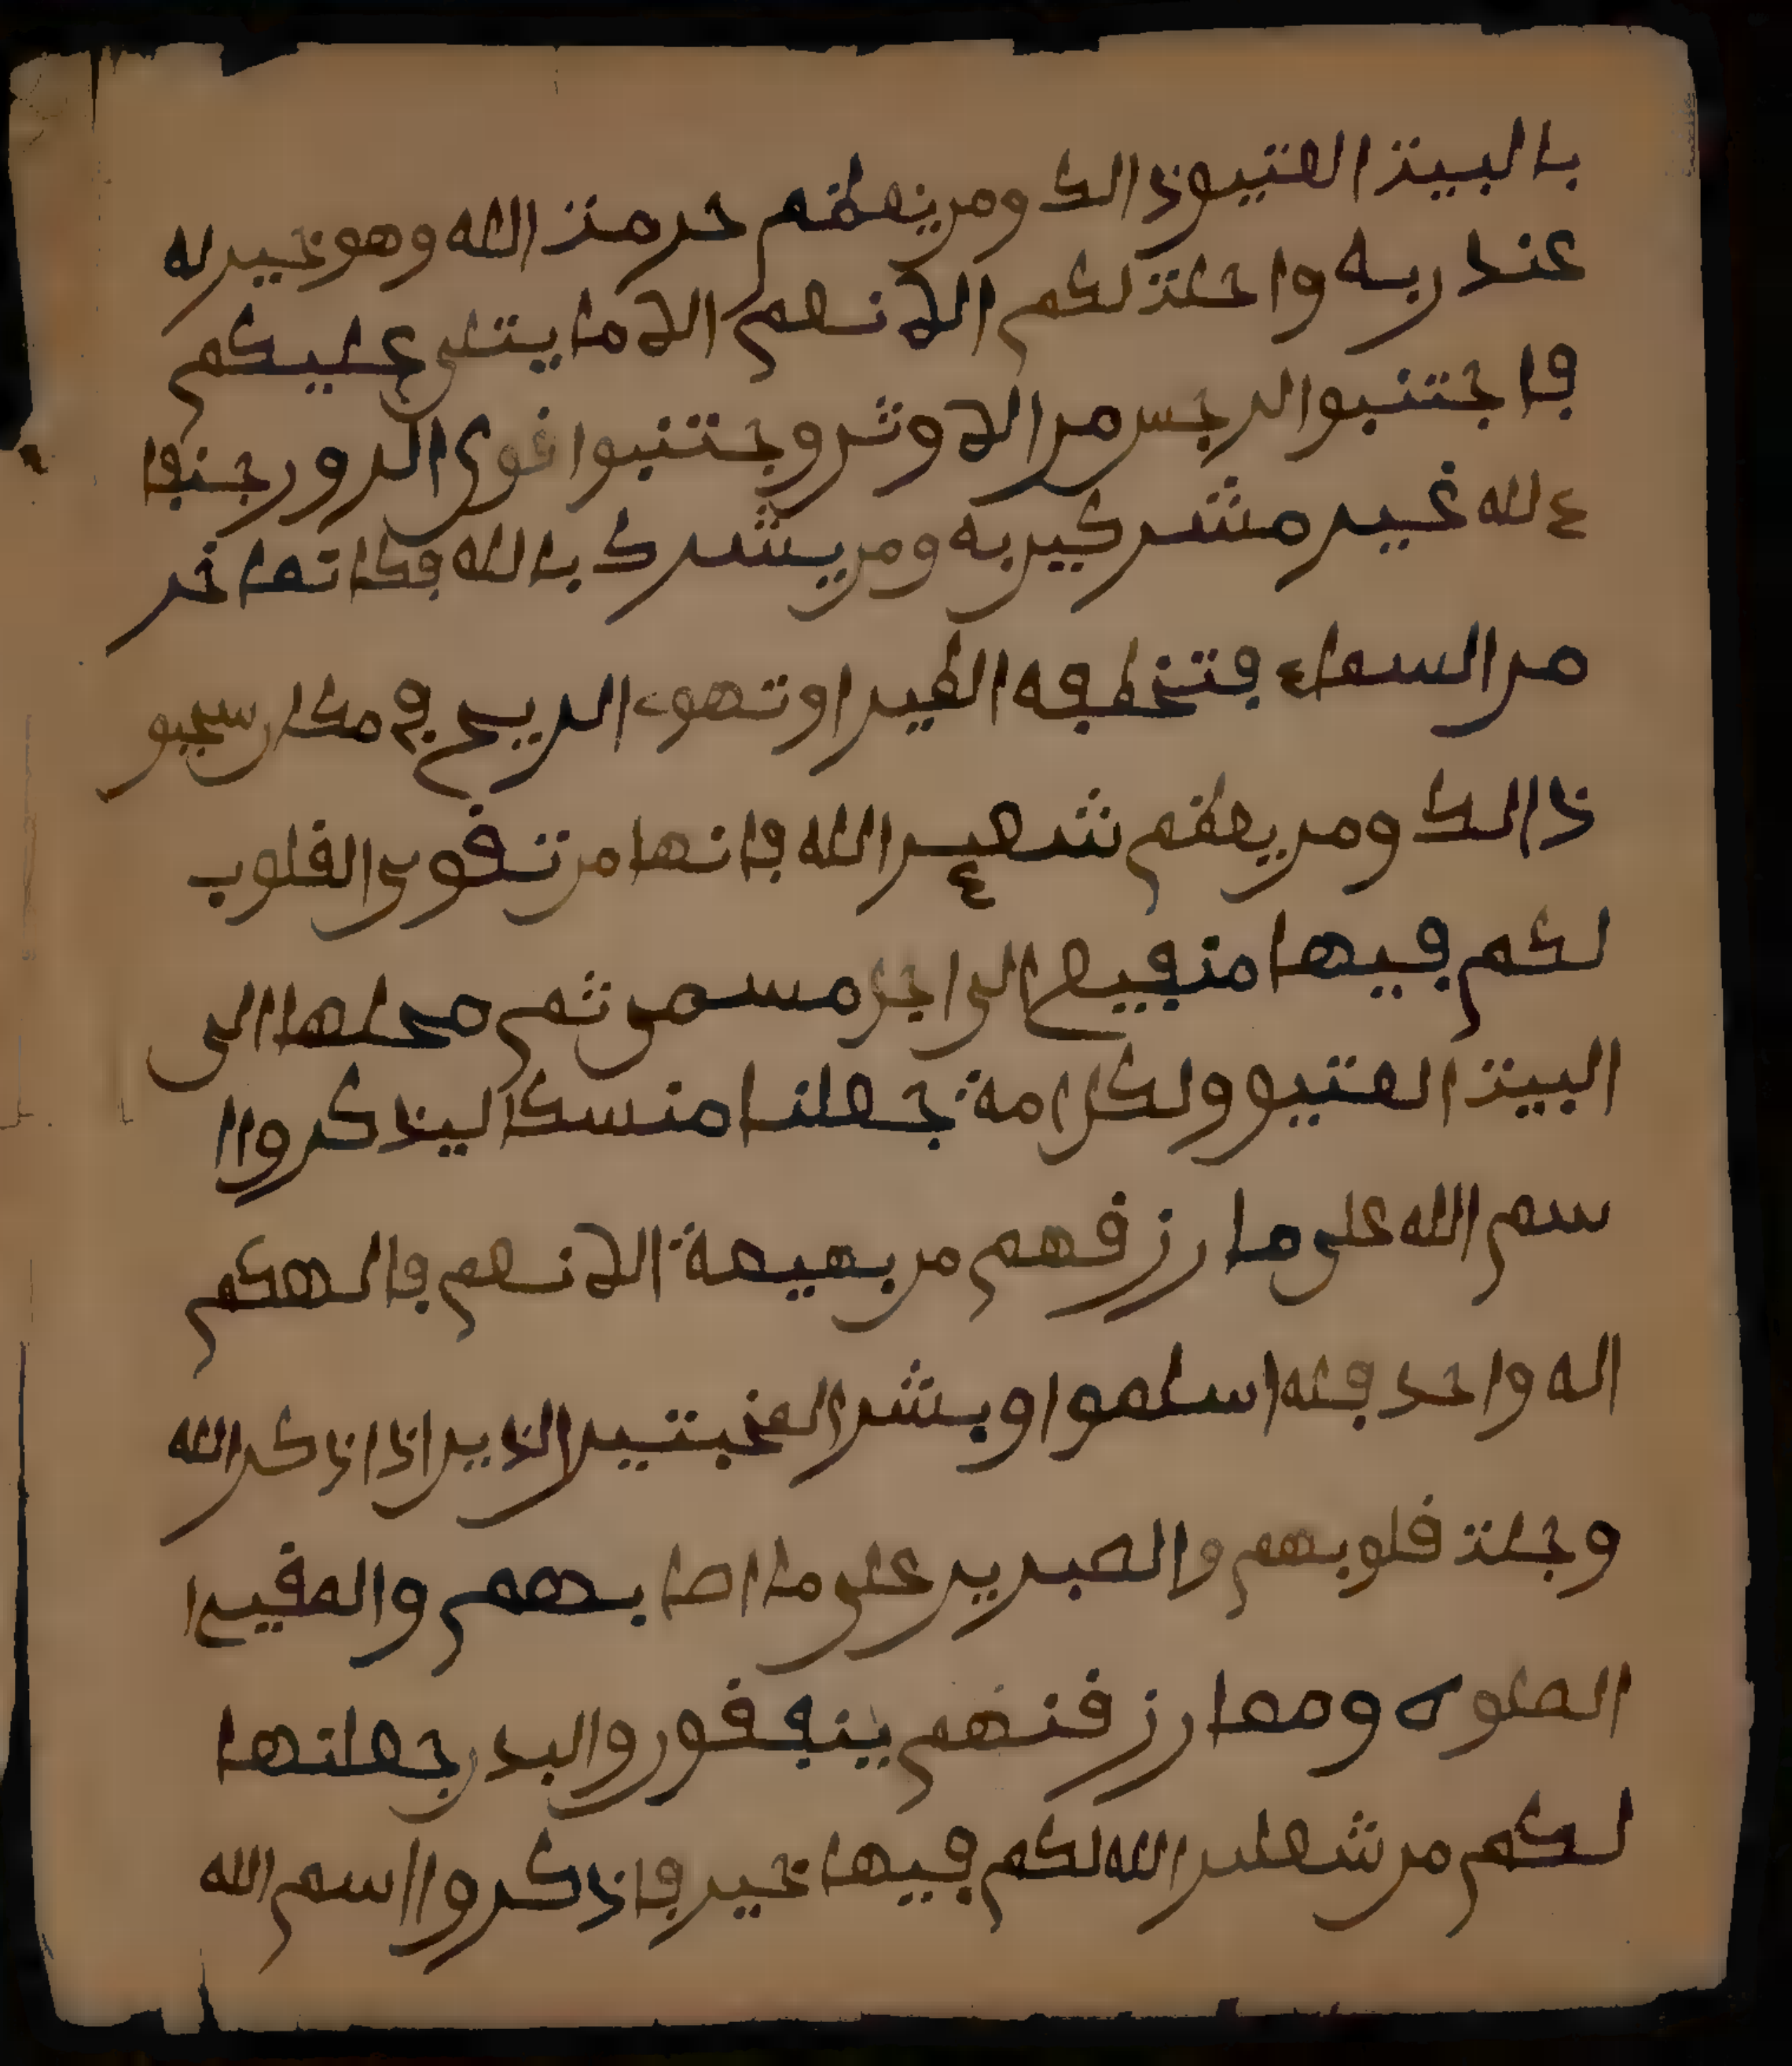 بالبيت العتيق ذالك ومن يعظم حرمت الله وهو خير له
عند ربه واحلت لكم الانعم الا ما يتلى عليكم
فاجتنبوا الرجس من الاوثن وجتنبوا قول الزور حنفا
ء لله غير مشركين به ومن يشرك بالله فكانما خر
من السماء فتخطفه الطير او تهوى الريح في مكان سحيق
ذالك ومن يعظم شعير الله فانها من تقوى القلوب
لكم فيها منفيع الى اجل مسمى ثم محلها الى
البيت العتيق ولكل امة جعلنا منسكا ليذكروا ا
سم الله على ما رزقهم من بهيمة الانعم فالهكم
اله واحد فله اسلموا وبشر المخبتين الذين اذا ذكر الله
وجلت قلوبهم والصبرين على ما اصابهم والمقيمي ا
الصلوه ومما رزقنهم ينفقون والبدن جعلنها
لكم من شعاير الله لكم فيها خير فاذكروا اسم الله